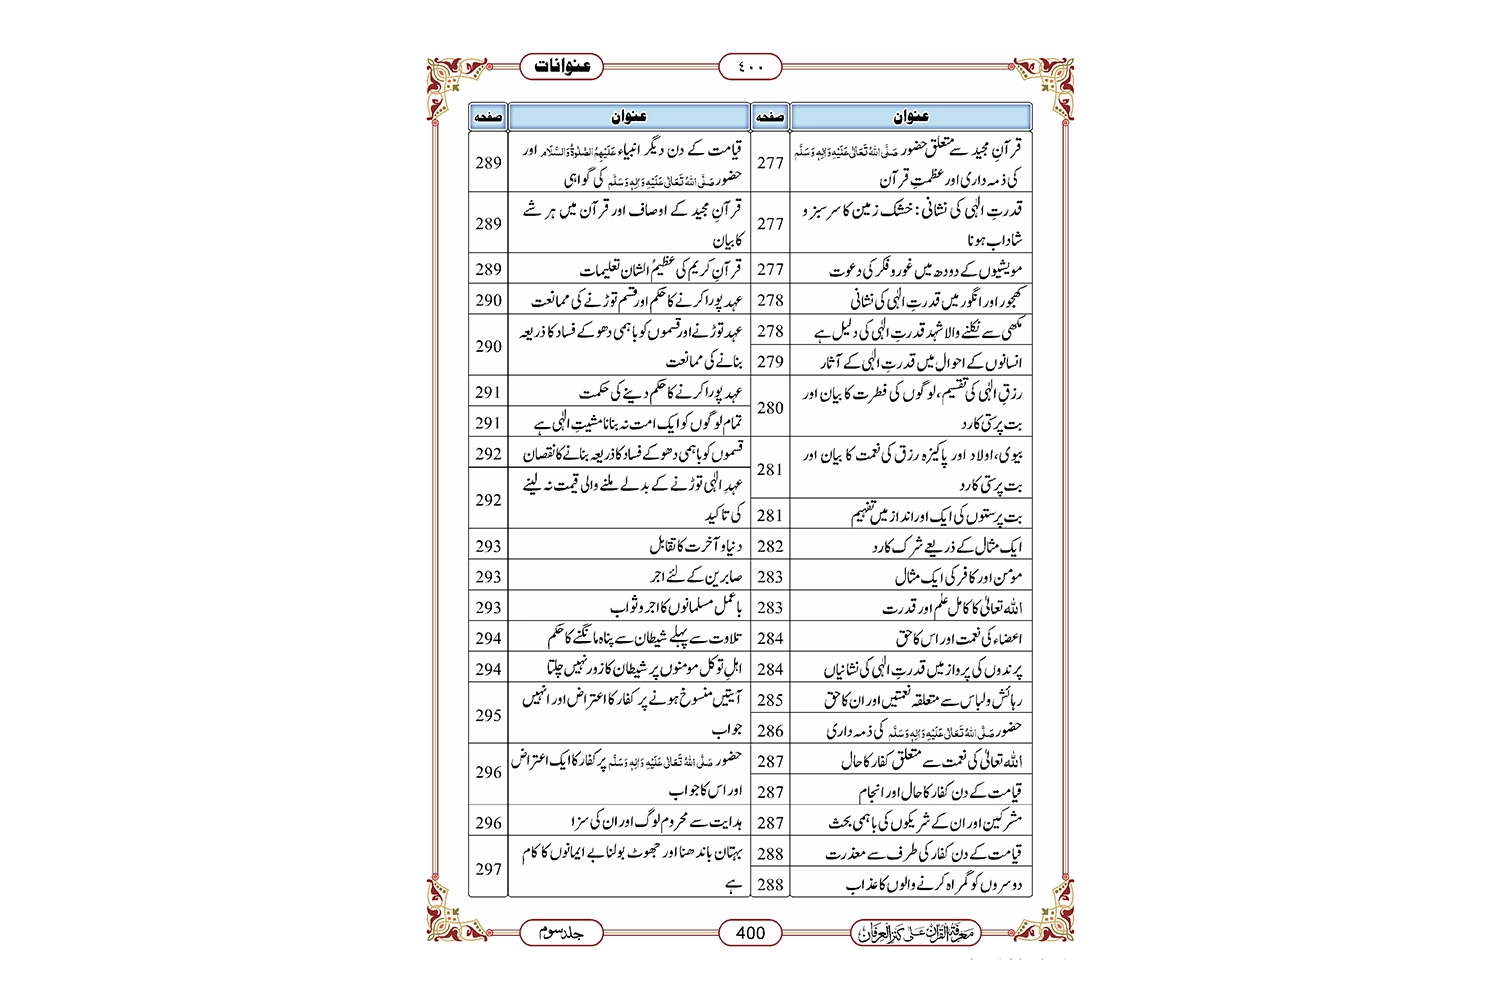 عنوانات
٤٠٠
عنوان
صفحہ
قرآنِ مجید سے متعلق حضور صَلَّی اللہُ تَعَالٰی عَلَیْہِ وَاٰلِہٖ وَسَلَّم
کی ذمہ داری اور عظمتِ قرآن
277
قدرتِ الٰہی کی نشانی: خشک زمین کا سرسبز و
شاداب ہونا
277
مویشیوں کے دودھ میں غور و فکر کی دعوت
277
کھجور اور انگور میں قدرتِ الٰہی کی نشانی
278
مکھی سے نکلنے والا شہد قدرتِ الٰہی کی دلیل ہے
278
انسانوں کے احوال میں قدرتِ الٰہی کے آثار
279
رزقِ الٰہی کی تقسیم، لوگوں کی فطرت کا بیان اور
بت پرستی کا رد
280
بیوی، اولاد اور پاکیزہ رزق کی نعمت کا بیان اور
بت پرستی کا رد
281
بت پرستوں کی ایک اور انداز میں تفہیم
281
ایک مثال کے ذریعے شرک کا رد
282
مومن اور کافر کی ایک مثال
283
اللہ تعالیٰ کا کامل علم اور قدرت
283
اعضاء کی نعمت اور اس کا حق
284
پرندوں کی پرواز میں قدرتِ الٰہی کی نشانیاں
284
رہائش و لباس سے متعلقہ نعمتیں اور ان کا حق
285
حضور صَلَّی اللہُ تَعَالٰی عَلَیْہِ وَاٰلِہٖ وَسَلَّم کی ذمہ داری
286
اللہ تعالیٰ کی نعمت سے متعلق کفار کا حال
287
قیامت کے دن کفار کا حال اور انجام
287
مشرکین اور ان کے شریکوں کی باہمی بحث
287
قیامت کے دن کفار کی طرف سے معذرت
288
دوسروں کو گمراہ کرنے والوں کا عذاب
288
عنوان
صفحہ
قیامت کے دن دیگر انبیاء عَلَیْہِمُ الصَّلٰوۃُ وَالسَّلَام اور
حضور صَلَّی اللہُ تَعَالٰی عَلَیْہِ وَاٰلِہٖ وَسَلَّم کی گواہی
289
قرآنِ مجید کے اوصاف اور قرآن میں ہر شے
کا بیان
289
قرآنِ کریم کی عظیمُ الشان تعلیمات
289
عہد پورا کرنے کا حکم اور قسم توڑنے کی ممانعت
290
عہد توڑنے اور قسموں کو باہمی دھوکے فساد کا ذریعہ
بنانے کی ممانعت
290
عہد پورا کرنے کا حکم دینے کی حکمت
291
تمام لوگوں کو ایک امت نہ بنانا مشیتِ الٰہی ہے
291
قسموں کو باہمی دھوکے فساد کا ذریعہ بنانے کا نقصان
292
عہدِ الٰہی توڑنے کے بدلے ملنے والی قیمت نہ لینے
کی تاکید
292
دنیا و آخرت کا تقابل
293
صابرین کے لئے اجر
293
باعمل مسلمانوں کا اجر و ثواب
293
تلاوت سے پہلے شیطان سے پناہ مانگنے کا حکم
294
اہلِ توکل مومنوں پر شیطان کا زور نہیں چلتا
294
آیتیں منسوخ ہونے پر کفار کا اعتراض اور انہیں
جواب
295
حضور صَلَّی اللہُ تَعَالٰی عَلَیْہِ وَاٰلِہٖ وَسَلَّم پر کفار کا ایک اعتراض
اور اس کا جواب
296
ہدایت سے محروم لوگ اور ان کی سزا
296
بہتان باندھنا اور جھوٹ بولنا بے ایمانوں کا کام
ہے
297
معرفۃ القرآن علیٰ کنز العرفان
400
جلد سوم